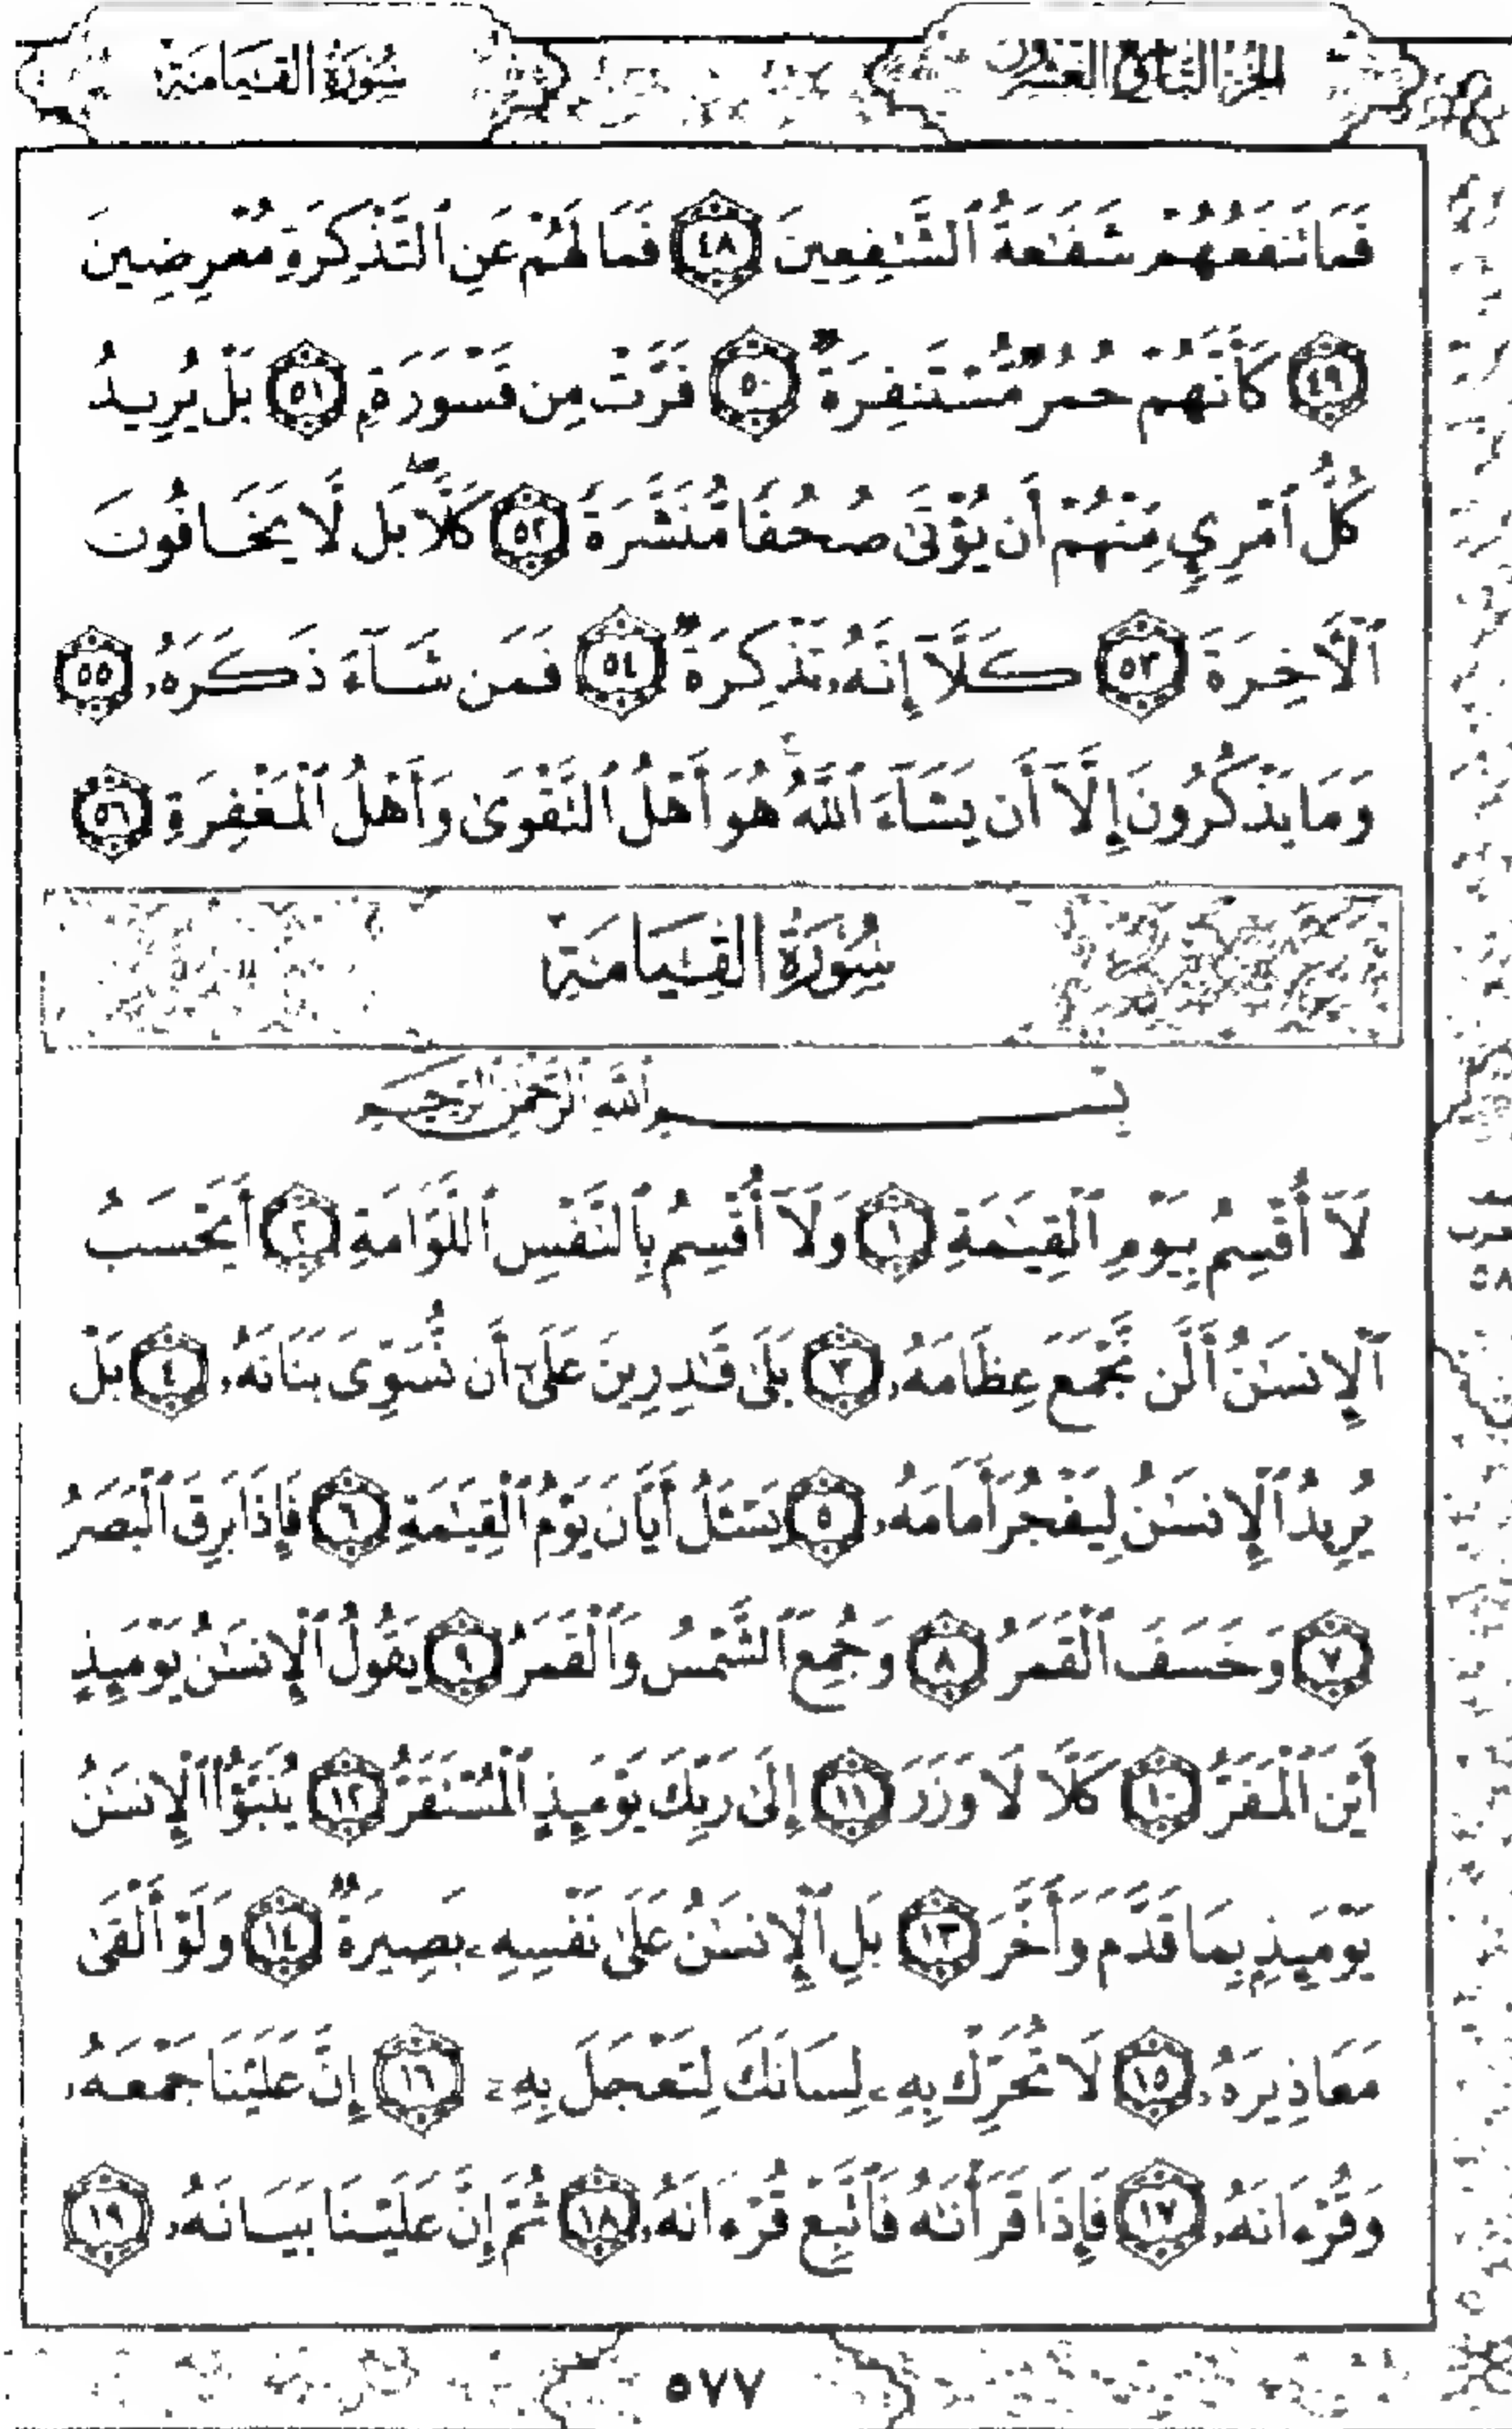 سُورَةُ القِيَامَةِ
فَمَا تَنفَعُهُمْ شَفَـٰعَةُ ٱلشَّـٰفِعِينَ ٤٨ فَمَا لَهُمْ عَنِ ٱلتَّذْكِرَةِ مُعْرِضِينَ
٤٩ كَأَنَّهُمْ حُمُرٌ مُّسْتَنفِرَةٌ ٥٠ فَرَّتْ مِن قَسْوَرَةٍ ٥١ بَلْ يُرِيدُ
كُلُّ ٱمْرِئٍ مِّنْهُمْ أَن يُؤْتَىٰ صُحُفًا مُّنَشَّرَةً ٥٢ كَلَّا ۖ بَل لَّا يَخَافُونَ
ٱلْـَٔاخِرَةَ ٥٣ كَلَّآ إِنَّهُۥ تَذْكِرَةٌ ٥٤ فَمَن شَآءَ ذَكَرَهُۥ ٥٥
وَمَا يَذْكُرُونَ إِلَّآ أَن يَشَآءَ ٱللَّهُ ۚ هُوَ أَهْلُ ٱلتَّقْوَىٰ وَأَهْلُ ٱلْمَغْفِرَةِ ٥٦
سُورَةُ القِيَامَةِ
بِسْمِ ٱللَّهِ ٱلرَّحْمَـٰنِ ٱلرَّحِيمِ
لَآ أُقْسِمُ بِيَوْمِ ٱلْقِيَـٰمَةِ ١ وَلَآ أُقْسِمُ بِٱلنَّفْسِ ٱللَّوَّامَةِ ٢ أَيَحْسَبُ
ٱلْإِنسَـٰنُ أَلَّن نَّجْمَعَ عِظَامَهُۥ ٣ بَلَىٰ قَـٰدِرِينَ عَلَىٰٓ أَن نُّسَوِّىَ بَنَانَهُۥ ٤ بَلْ
يُرِيدُ ٱلْإِنسَـٰنُ لِيَفْجُرَ أَمَامَهُۥ ٥ يَسْـَٔلُ أَيَّانَ يَوْمُ ٱلْقِيَـٰمَةِ ٦ فَإِذَا بَرِقَ ٱلْبَصَرُ
٧ وَخَسَفَ ٱلْقَمَرُ ٨ وَجُمِعَ ٱلشَّمْسُ وَٱلْقَمَرُ ٩ يَقُولُ ٱلْإِنسَـٰنُ يَوْمَئِذٍ
أَيْنَ ٱلْمَفَرُّ ١٠ كَلَّا لَا وَزَرَ ١١ إِلَىٰ رَبِّكَ يَوْمَئِذٍ ٱلْمُسْتَقَرُّ ١٢ يُنَبَّؤُا۟ ٱلْإِنسَـٰنُ
يَوْمَئِذٍۭ بِمَا قَدَّمَ وَأَخَّرَ ١٣ بَلِ ٱلْإِنسَـٰنُ عَلَىٰ نَفْسِهِۦ بَصِيرَةٌ ١٤ وَلَوْ أَلْقَىٰ
مَعَاذِيرَهُۥ ١٥ لَا تُحَرِّكْ بِهِۦ لِسَانَكَ لِتَعْجَلَ بِهِۦٓ ١٦ إِنَّ عَلَيْنَا جَمْعَهُۥ
وَقُرْءَانَهُۥ ١٧ فَإِذَا قَرَأْنَـٰهُ فَٱتَّبِعْ قُرْءَانَهُۥ ١٨ ثُمَّ إِنَّ عَلَيْنَا بَيَانَهُۥ ١٩
٥٨
٥٧٧